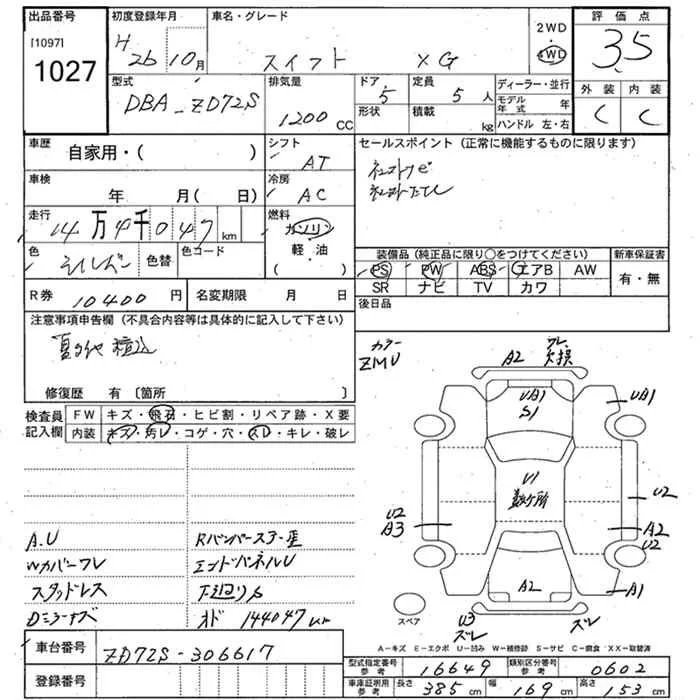 出品番号
[1097]
1027
初度登録年月
H 26 10月
車名・グレード
スイフト XG
2WD
4WD
評価点
3.5
型式
DBA-ZD72S
排気量
1200 CC
ドア
5
形状
定員
5 人
積載
kg
ディーラー・並行
モデル年式 年
ハンドル 左・右
外装 内装
C C
車歴
自家用・( )
シフト
AT
セールスポイント (正常に機能するものに限ります)
車検
年 月( 日)
冷房
AC
走行
14万4千047 km
燃料
ガソリン
軽・油
( )
色
シルバー
色替
色コード
装備品 (純正品に限り○をつけてください)
新車保証書
PS PW ABS エアB AW
SR ナビ TV カワ
有・無
R券 10400 円
名変期限 月 日
後日品
注意事項申告欄 (不具合内容等は具体的に記入して下さい)
修復歴 有 〔箇所 〕
カラー
ZMU
検査員
記入欄
FW キズ・飛石・ヒビ割・リペア跡・X要
内装 キズ・汚レ・コゲ・穴・スレ・キレ・破レ
A.U
Wカバーワレ
スタッドレス
エンドパネルU
下廻りS
オド 144047 km
A2
ワレ
欠損
UA1
S1
UA1
U1
数ヶ所
U2
A3
U2
A2
U2
A2
A1
U3
ズレ
ズレ
スペア
A-キズ E-エクボ U-凹み W-補修跡 S-サビ C-腐食 XX-取替済
車台番号 ZD72S-306617
登録番号
型式指定番号 参考 16649
類別区分番号 参考 0602
車庫証明用 参考 長さ 385 cm 幅 169 cm 高さ 153 cm